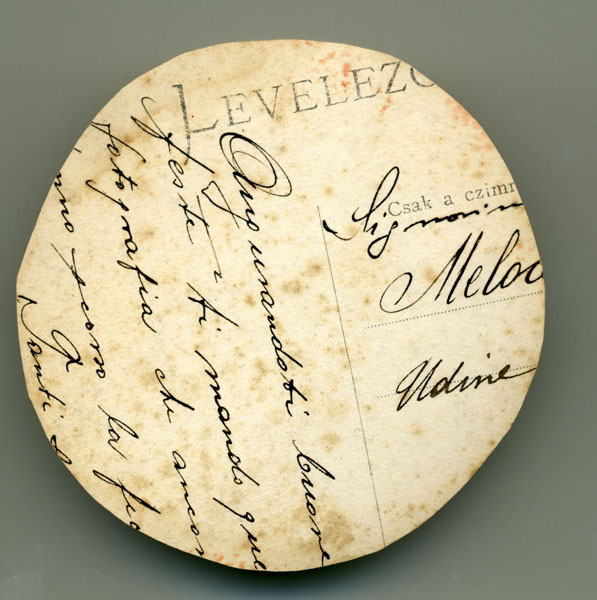 LEVELEZO
Csak a czimr
Signorin
Meloc
Udine
Augurandoti buone
feste ti mando que
fotografia che ancor
anno scorso la